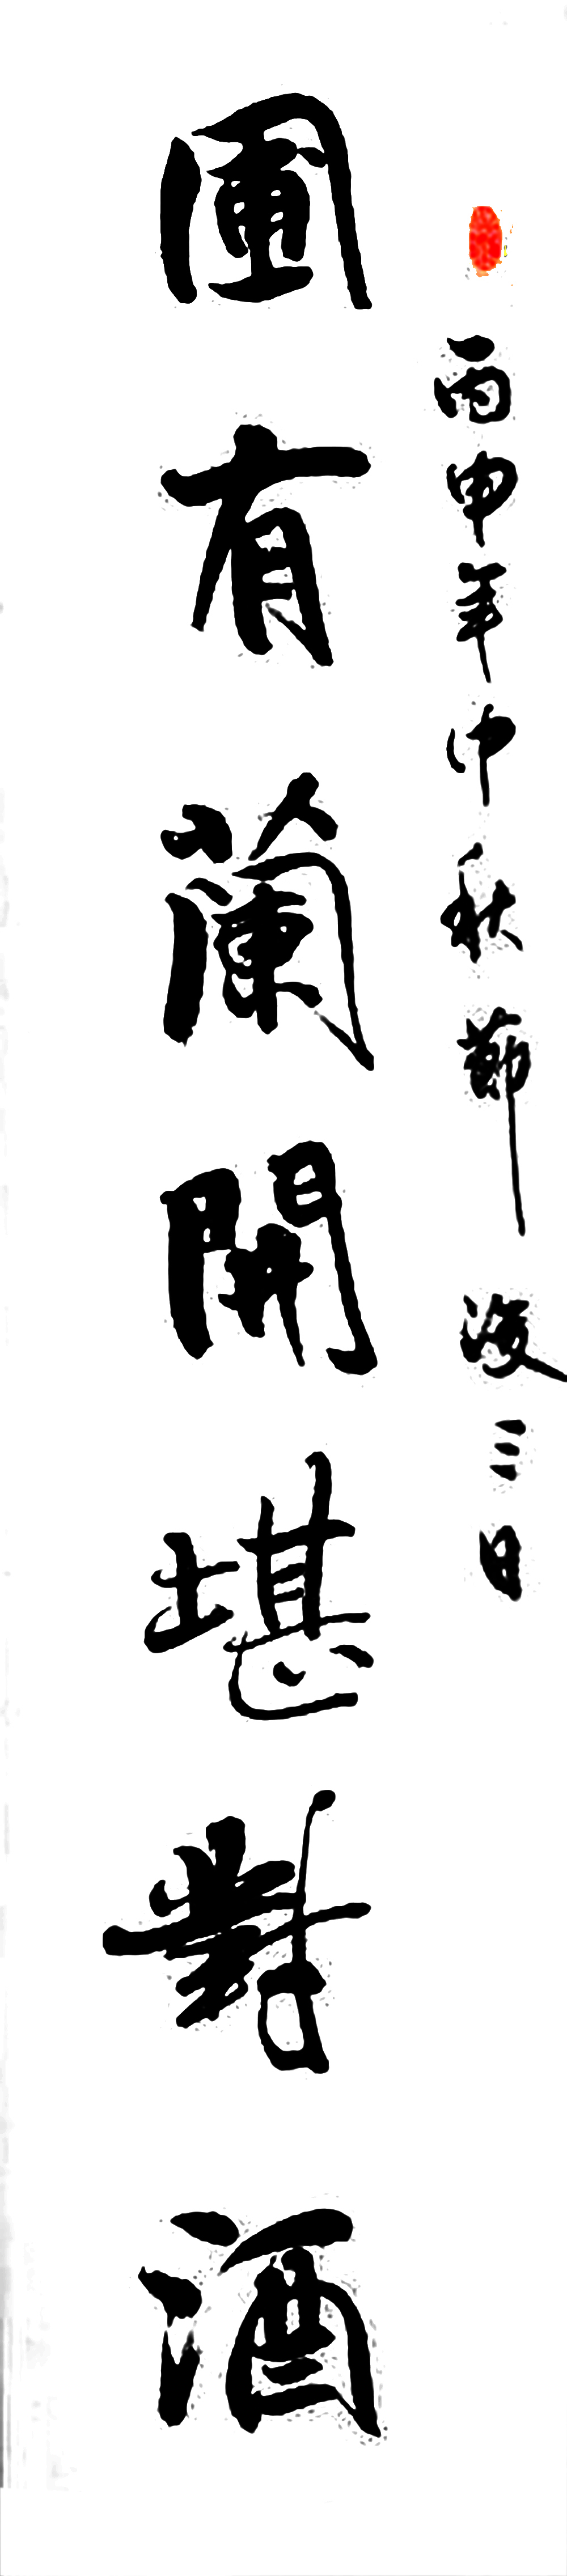 丙申年中秋節後三日
圃有蘭開堪對酒